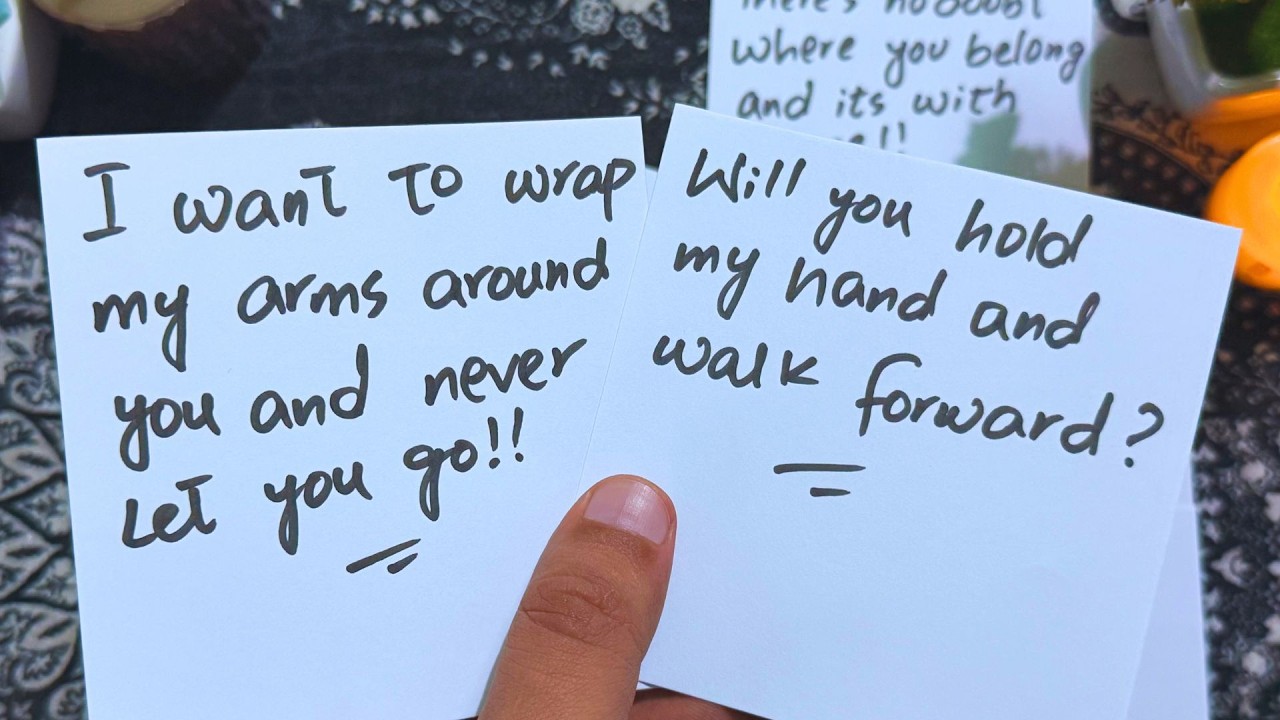 I want to wrap
my arms around
you and never
Let you go!!
Will you hold
my hand and
walk forward?
there's no doubt
where you belong
and its with
!!